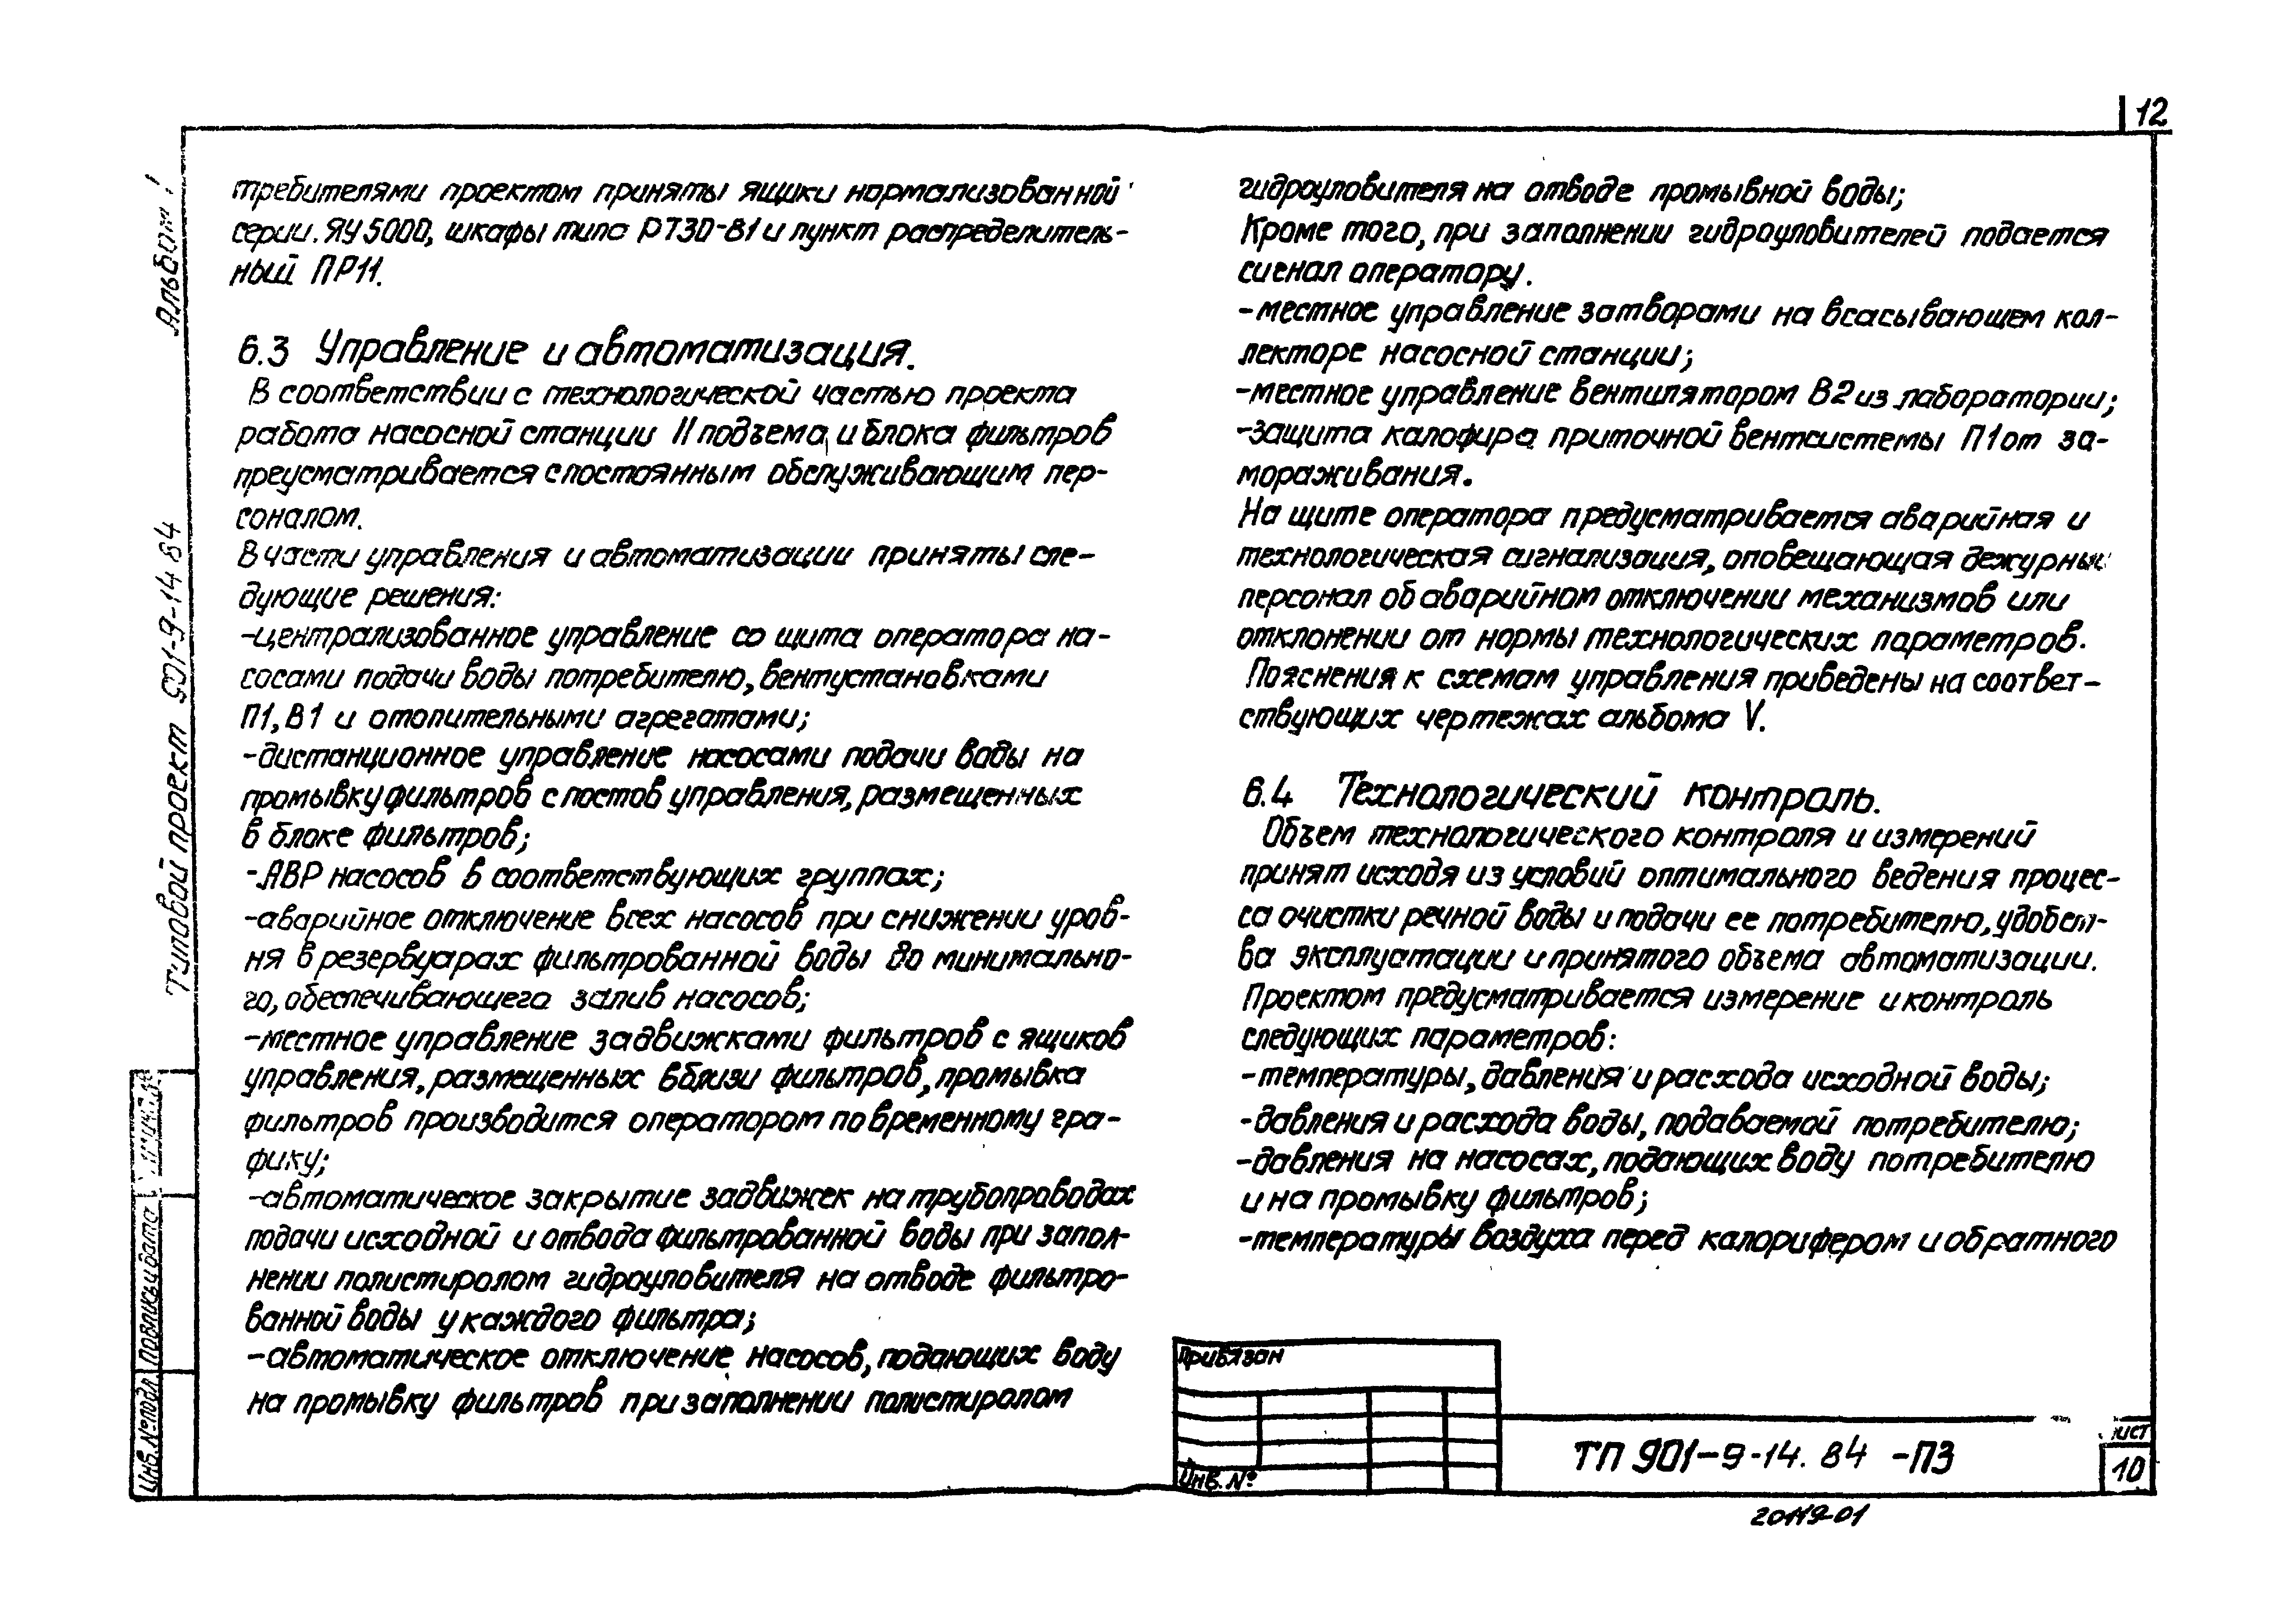 12
требителями проектом приняты ящики нормализованной
серии ЯУ5000, шкафы типа РТ30-81 и пункт распределитель-
ный ПР11.
6.3 Управление и автоматизация.
В соответствии с технологической частью проекта
работа насосной станции II подъема и блока фильтров
преусматривается с постоянным обслуживающим пер-
соналом.
В части управления и автоматизации приняты сле-
дующие решения:
-централизованное управление со щита оператора на-
сосами подачи воды потребителю, вентустановками
П1, В1 и отопительными агрегатами;
-дистанционное управление насосами подачи воды на
промывку фильтров с постов управления, размещенных
в блоке фильтров;
-АВР насосов в соответствующих группах;
-аварийное отключение всех насосов при снижении уров-
ня в резервуарах фильтрованной воды до минимально-
го, обеспечивающего залив насосов;
-местное управление задвижками фильтров с ящиков
управления, размещенных вблизи фильтров, промывка
фильтров производится оператором по временному гра-
фику;
-автоматическое закрытие задвижек на трубопроводах
подачи исходной и отвода фильтрованной воды при запол-
нении полистиролом гидроуловителя на отводе фильтро-
ванной воды у каждого фильтра;
-автоматическое отключение насосов, подающих воду
на промывку фильтров при заполнении полистиролом
гидроуловителя на отводе промывной воды;
Кроме того, при заполнении гидроуловителей подается
сигнал оператору.
-местное управление затворами на всасывающем кол-
лекторе насосной станции;
-местное управление вентилятором В2 из лаборатории;
-защита калофира приточной вентсистемы П1 от за-
мораживания.
На щите оператора предусматривается аварийная и
технологическая сигнализация, оповещающая дежурный
персонал об аварийном отключении механизмов или
отклонении от нормы технологических параметров.
Пояснения к схемам управления приведены на соответ-
ствующих чертежах альбома V.
6.4 Технологический контроль.
Объем технологического контроля и измерений
принят исходя из условий оптимального ведения процес-
са очистки речной воды и подачи ее потребителю, удобст-
ва эксплуатации и принятого объема автоматизации.
Проектом предусматривается измерение и контроль
следующих параметров:
-температуры, давления и расхода исходной воды;
-давления и расхода воды, подаваемой потребителю;
-давления на насосах, подающих воду потребителю
и на промывку фильтров;
-температуры воздуха перед калорифером и обратного
Привязан
Инв. №
ТП 901-9-14.84 -ПЗ
лист
10
20119-01
Альбом I
Типовой проект 901-9-14.84
Инв. № подл.
Подпись и дата